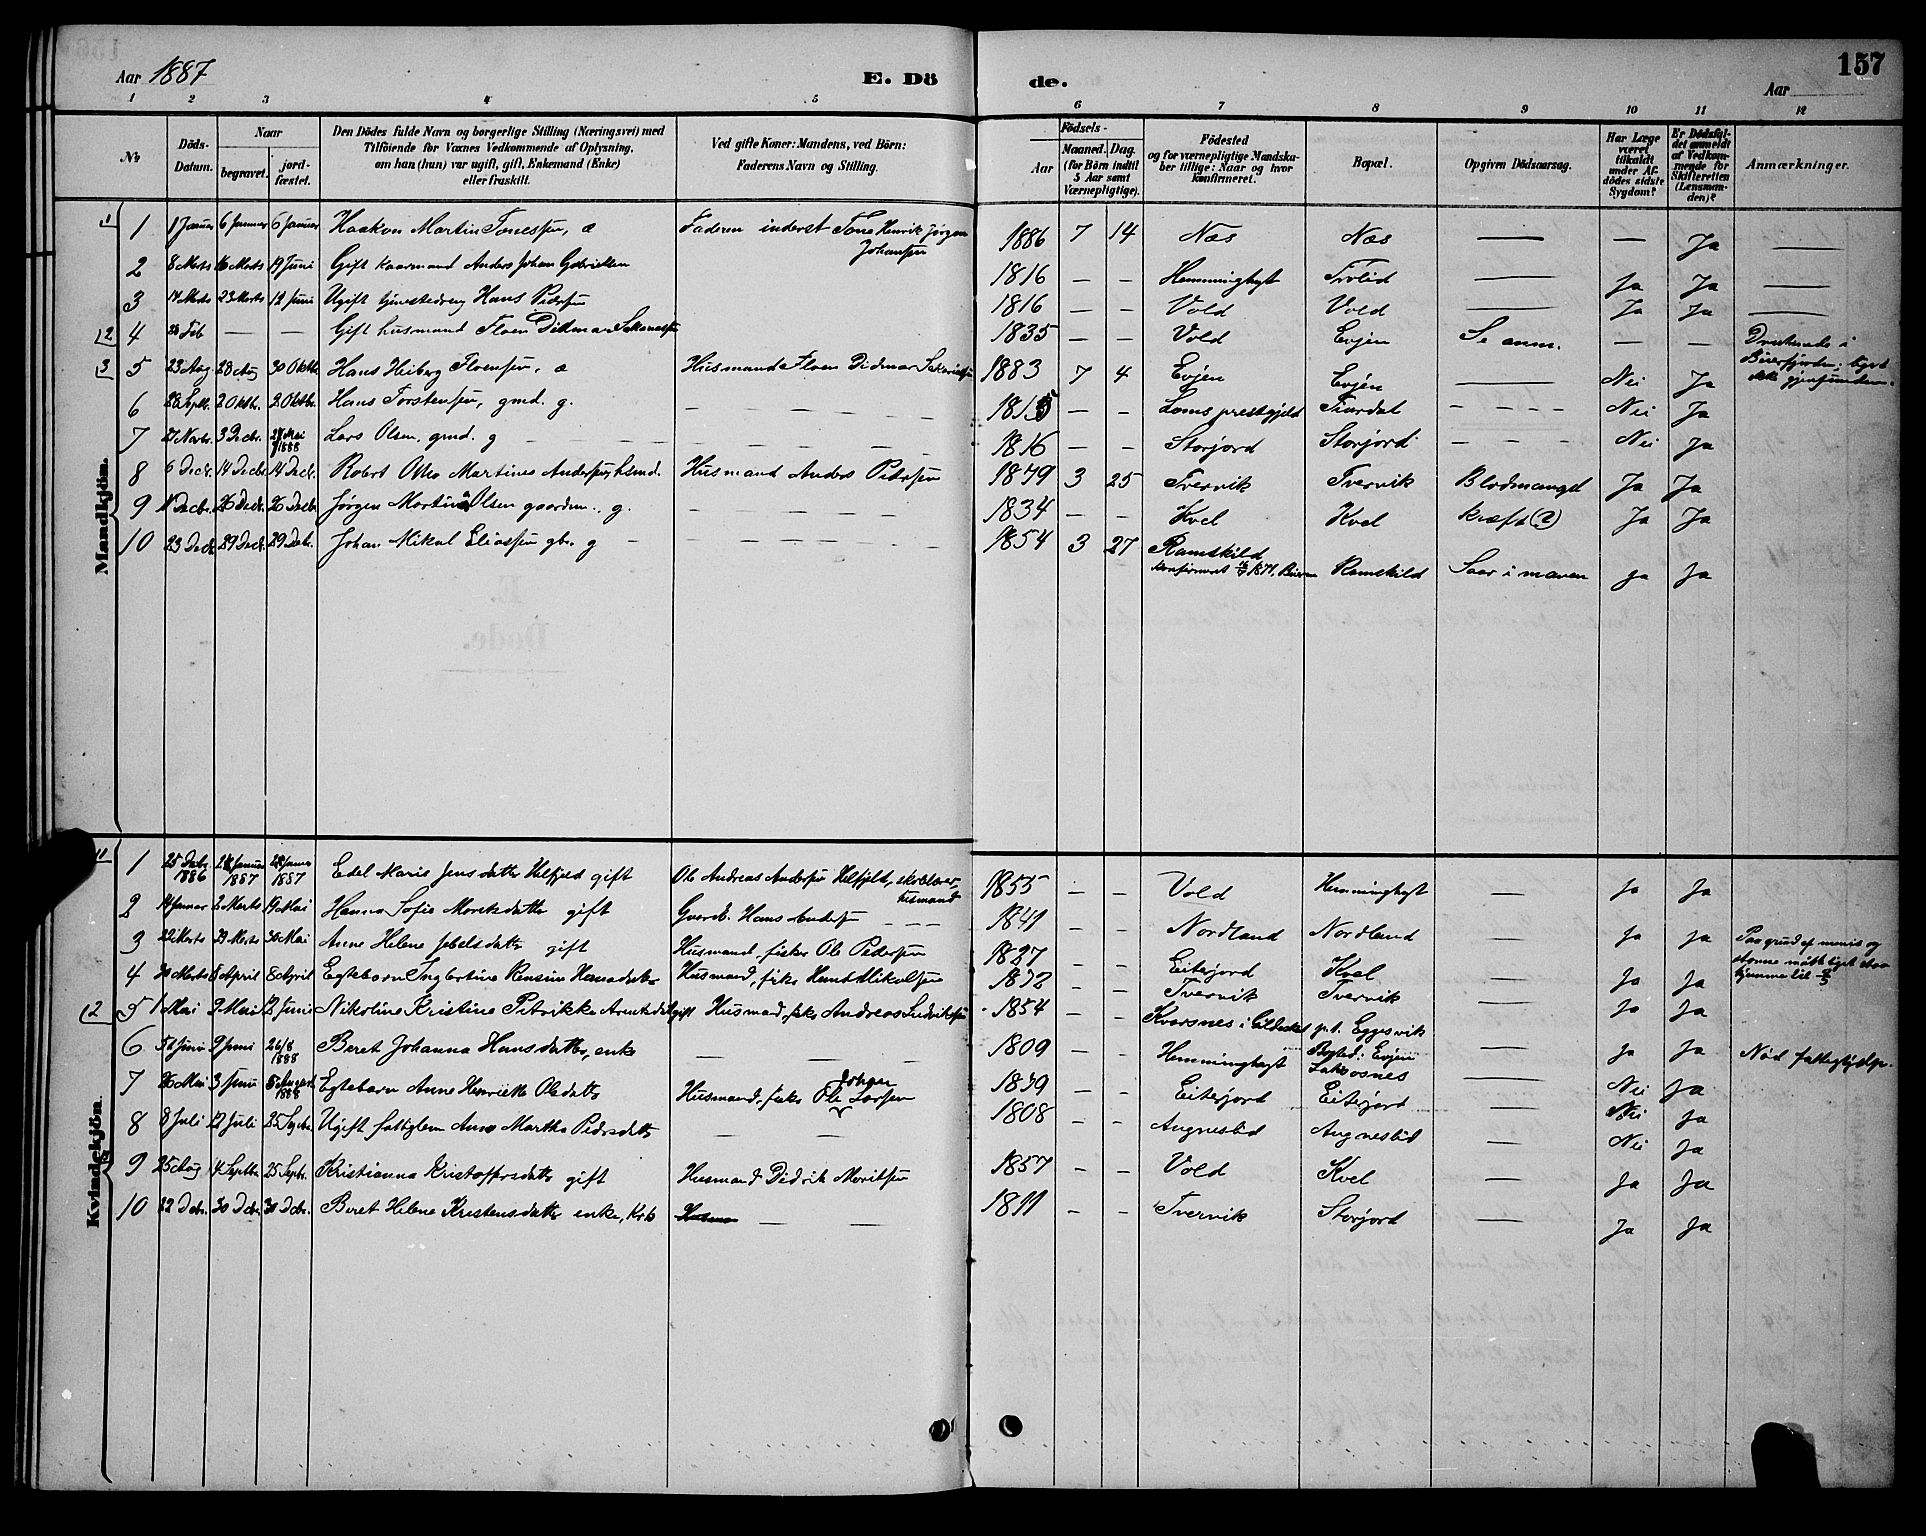 Aar 1887
E. Dö
de.
Aar
157
1 2 3 4 5 6 7 8 9 10 11 12
No
Döds-Datum.
Naar
begravet.
jord-fæstet.
Den Dödes fulde Navn og borgerlige Stilling (Næringsvei) med
Tilföiende for Voxnes Vedkommende af Oplysning,
om han (hun) var ugift, gift, Enkemand (Enke)
eller fraskilt.
Ved gifte Koner: Mandens, ved Börn:
Faderens Navn og Stilling.
Födsels-
Aar
Maaned. Dag.
(for Börn indtil
5 Aar samt
Værnepligtige).
Födested
og for værnepligtige Mandska-
ber tillige: Naar og hvor
konfirmeret.
Bopæl.
Opgiven Dödsaarsag.
Har Læge
været
tilkaldt
under Af-
dödes sidste
Sygdom?
Er Dödsfal-
det anmeldt
af Vedkom-
mende for
Skifteretten
(Lensman-
den)?
Anmærkninger.
Mandkjön.
1 1 Januar 6 Januar 6 Januar Haakon Martin Tonessen, æ Faderen inderst Tone Henrik Jørgen Johansen 1886 7 14 Næs Næs — — Ja —
2 8 Marts 16 Marts 19 Juni Gift kaarmand Anders Johan Gabrielsen 1816 — — Hemminghyt Trolid — Ja Ja —
3 14 Marts 23 Marts 12 Juni Ugift tjenestedreng Hans Pedersen 1816 — — Vold Vold — Ja Ja —
4 Feb — — Gift husmand Floen Didmar 1835 — — Vold Evjen Se anm. — — Druknede i Beierfjorden; liget ikke gjenfunden.
5 23 Aug 28 Aug 30 Oktbr Hans Heiberg Floensen, æ Husmand Floen Didmar 1883 7 4 Evjen Evjen — Nei Ja
6 28 Septbr. 2 Oktbr. 2 Oktbr. Hans Torstensen, gmd. g. — — Loms prestegjeld — Nei Ja
7 27 Novbr. 3 Decbr. Mai 1888 Lars Olsen, gmd. g 1816 — — Storjord Storjord — Nei Ja
8 6 Decbr. 14 Decbr 14 Decbr. Robert Otto Martines Andersen, husmd. Husmand Anders Pedersen 1879 3 25 Tvervik Tvervik Blodmangel Ja Ja
9 11 Decbr. 26 Decbr. 26 Decbr Jørgen Martin Olsen gaardm., g. 1834 — — Kvel Kvel kræft (?) Ja Ja
10 23 Decbr 29 Decbr. 29 Debr. Johan Mikal Eliassen gbr. g 1854 3 27 Ramskild Konfirmeret 1871, Beiern Ramskild Saar i maven Ja Ja
Kvindekjön.
1 25 Debr 1886 Januar 1887 Januar 1887 Edel Marie Jensdatter Helfjeld gift Ole Andreas Andersen Helfjeld, skolelærer, husmand 1855 — — Vold Hemminghyt — Ja Ja
2 14 Januar 2 Marts 19 Mai Hanna Sofie Moritsdatter gift Gaardb. Hans Andersen 1841 — — Nordland Nordland — Ja Ja
3 22 Marts 29 Marts 30 Mai Anne Helene gift Husmand, fisker Ole Pedersen 1827 — — Eiterjord Kvel — Ja Ja
4 30 Marts 8 April 8 April Egtebarn Ingbertine Rensine Hansdatter Husmand, fisker Hans 1832 — — Tvervik Tvervik — Ja Ja
5 1 Mai 9 Mai 12 Juni Nikoline Kristine Petrikke Arentsdatter gift Husmand, fisker Andreas 1854 — — Kvarsnes i Gildeskaal p.t. Eggesvik Bosted: Evjen
6 Juni 9 Juni 26/8 1888 Beret Johanna Hansdatter, enke — — — 1809 — — Hemminghyt — Ja Ja Nød fattighjælp.
7 26 Mai 3 Juni August 1888 Egtebarn Anne Henriette Olsdatter Husmand, fisker Ole Johan Larsen 1839 — — Eiterjord Eiterjord — Nei Ja
8 8 Juli 12 Juli 25 Septbr. Ugift fattiglem Anne Martha Pedersdatter — — 1808 — — Angneslid Angneslid — Nei Ja
9 25 Aug 4 Septbr 25 Septbr. Kristianna Kristoffersdatter gift Husmand Didrik Moritsen 1857 — — Vold Kvel — Ja Ja
10 22 Debr. 30 Debr. 30 Debr. Beret Helene Kristensdatter enke, — — 1811 — — Tvervik Storjord — Ja Ja